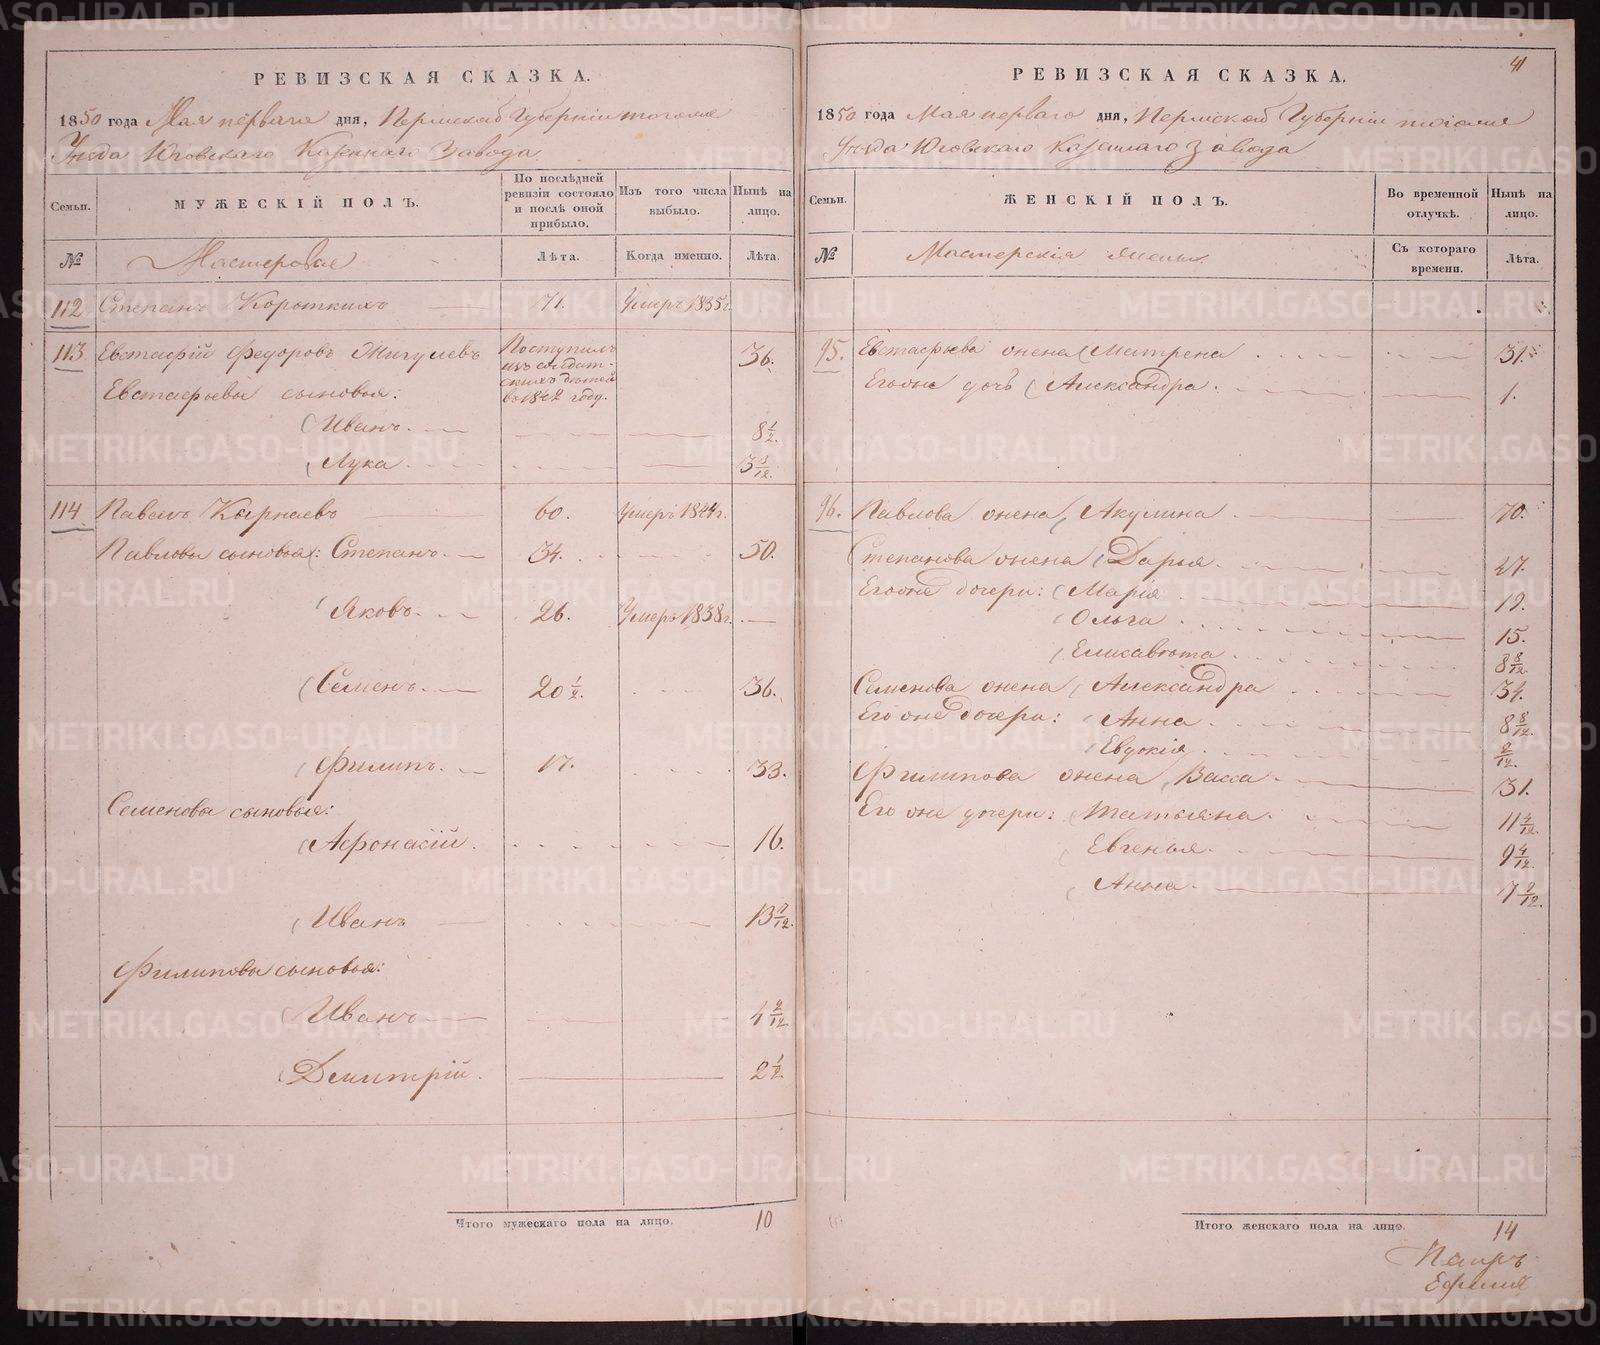 РЕВИЗСКАЯ СКАЗКА.
1850 года Мая перваго дня, Пермской Губерніи тогоже
Уѣзда Юговскаго Казеннаго Завода
Семьи.
МУЖЕСКІЙ ПОЛЪ.
По послѣдней ревизіи состояло и послѣ оной прибыло.
Изъ того числа выбыло.
Нынѣ на лицо.
№
Мастеровые
Лѣта.
Когда именно.
Лѣта.
112 Степанъ Короткихъ 71. Умеръ 1835 г.
113. Евстафій Федоровъ Жигулевъ Поступилъ изъ солдатскихъ дѣтей въ 1842 году. 36.
Евстафьевы сыновья:
Иванъ. 8 1/2.
Лука 3 8/12.
114. Павелъ Кырнаевъ 60. Умеръ 1844 г.
Павловы сыновья: Степанъ. 34. 50.
Яковъ. 26. Умеръ 1838 г.
Семенъ. 20 1/2. 36.
Филипъ. 17. 33.
Семеновы сыновья:
Афонасій. 16.
Иванъ 13 2/12.
Филиповы сыновья:
Иванъ 4 2/12.
Димитрій. 2 1/2.
Итого мужескаго пола на лицо. 10
41
РЕВИЗСКАЯ СКАЗКА.
1850 года Мая перваго дня, Пермской Губерніи тогоже
Уѣзда Юговскаго Казеннаго Завода
Семьи.
ЖЕНСКІЙ ПОЛЪ.
Во временной отлучкѣ.
Нынѣ на лицо.
№
Мастерскія жены
Съ котораго времени.
Лѣта.
95. Евстафьева жена Матрена 31.
Егоже дочь Александра. 1.
96. Павлова жена Акулина 70.
Степанова жена Дарья. 47.
Егоже дочери: Марія 19.
Ольга 15.
Елисавета 8 8/12.
Семенова жена Александра 34.
Егоже дочери: Анна 8 8/12.
Евдокія. 2/12.
Филипова жена Васса 31.
Егоже дочери: Татьяна 11 4/12.
Евгенья. 9 4/12.
Анна 7 2/12.
Итого женскаго пола на лицо. 14
METRIKI.GASO-URAL.RU